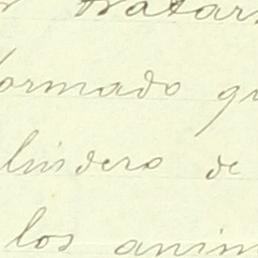 tratar
formado qu
lindero de
los anim